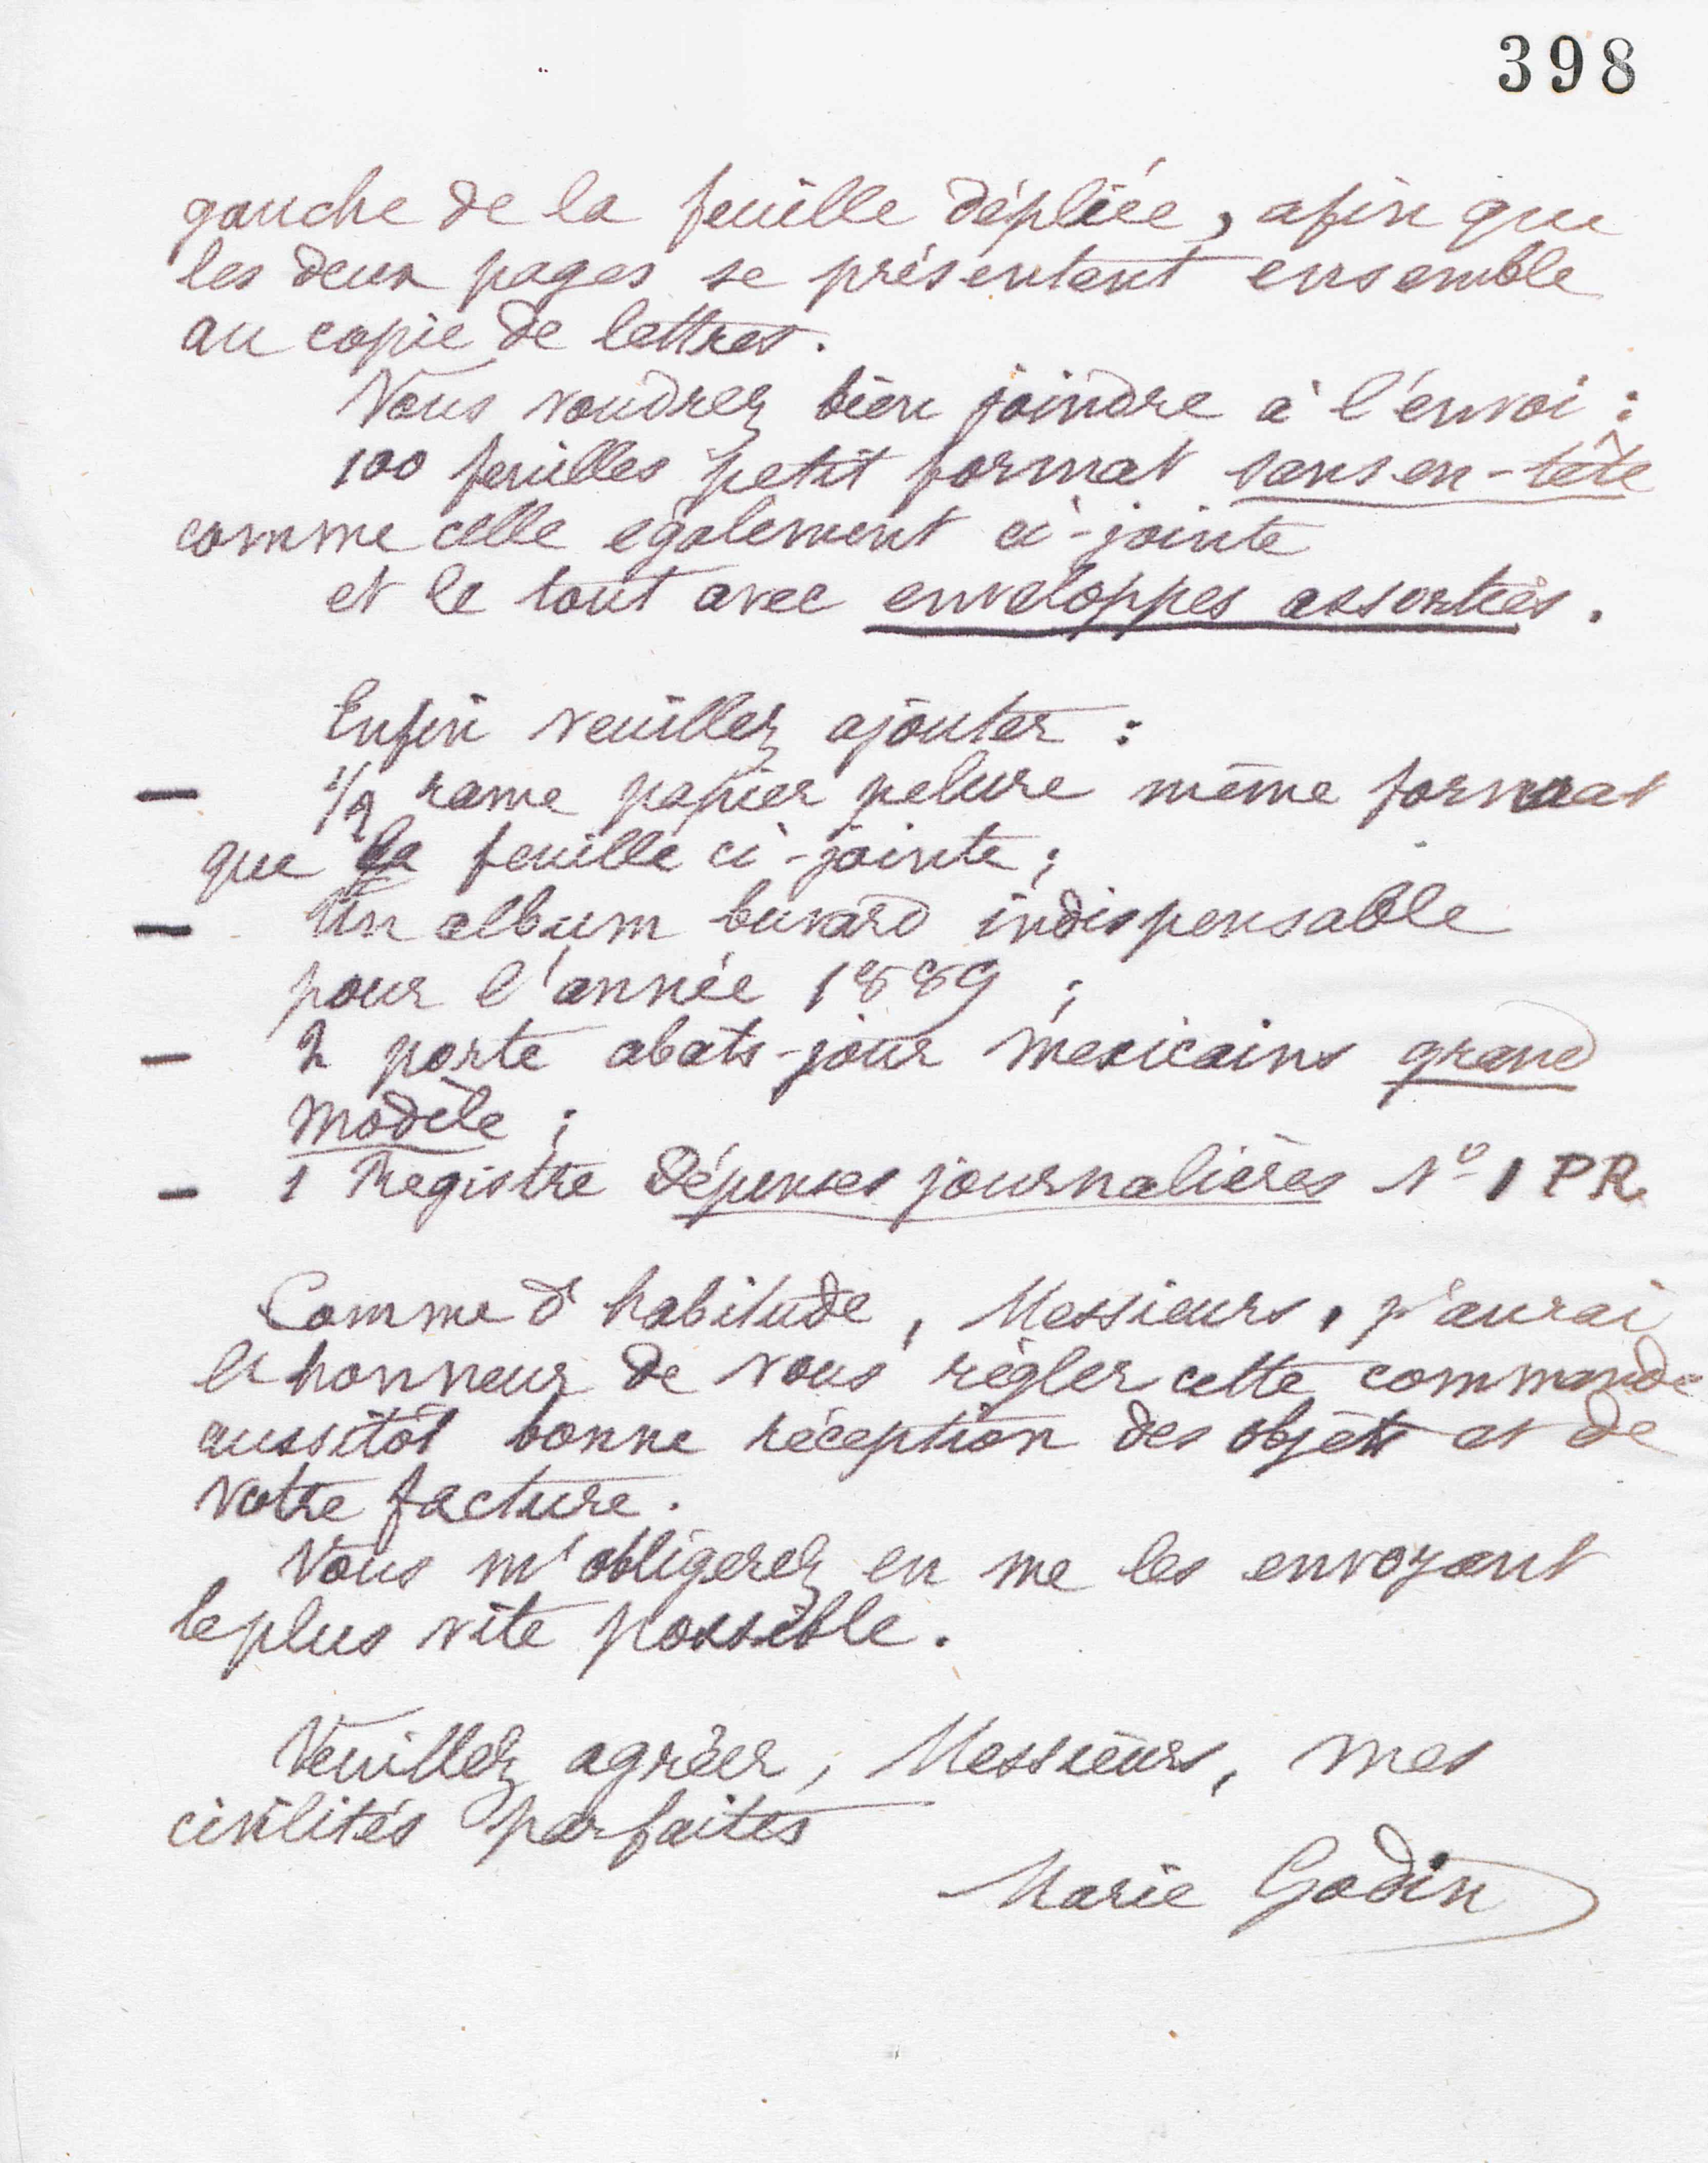 398
gauche de la feuille dépliée, afin que
les deux pages se présentent ensemble
au copie de lettres.
Vous voudrez bien joindre à l'envoi :
100 feuilles petit format sans en-tête
comme celle également ci-jointe
et le tout avec enveloppes assorties.
Enfin veuillez ajouter :
— 1/2 rame papier pelure même format
que la feuille ci-jointe ;
— Un album buvard indispensable
pour l'année 1889 ;
— 2 porte abats-jour mexicains grand
modèle ;
— 1 Registre Dépenses journalières No 1 PR.
Comme d'habitude, Messieurs, j'aurai
l'honneur de vous régler cette commande
aussitôt bonne réception des objets et de
votre facture.
Vous m'obligerez en me les envoyant
le plus vite possible.
Veuillez agréer, Messieurs, mes
civilités parfaites
Marie Godin